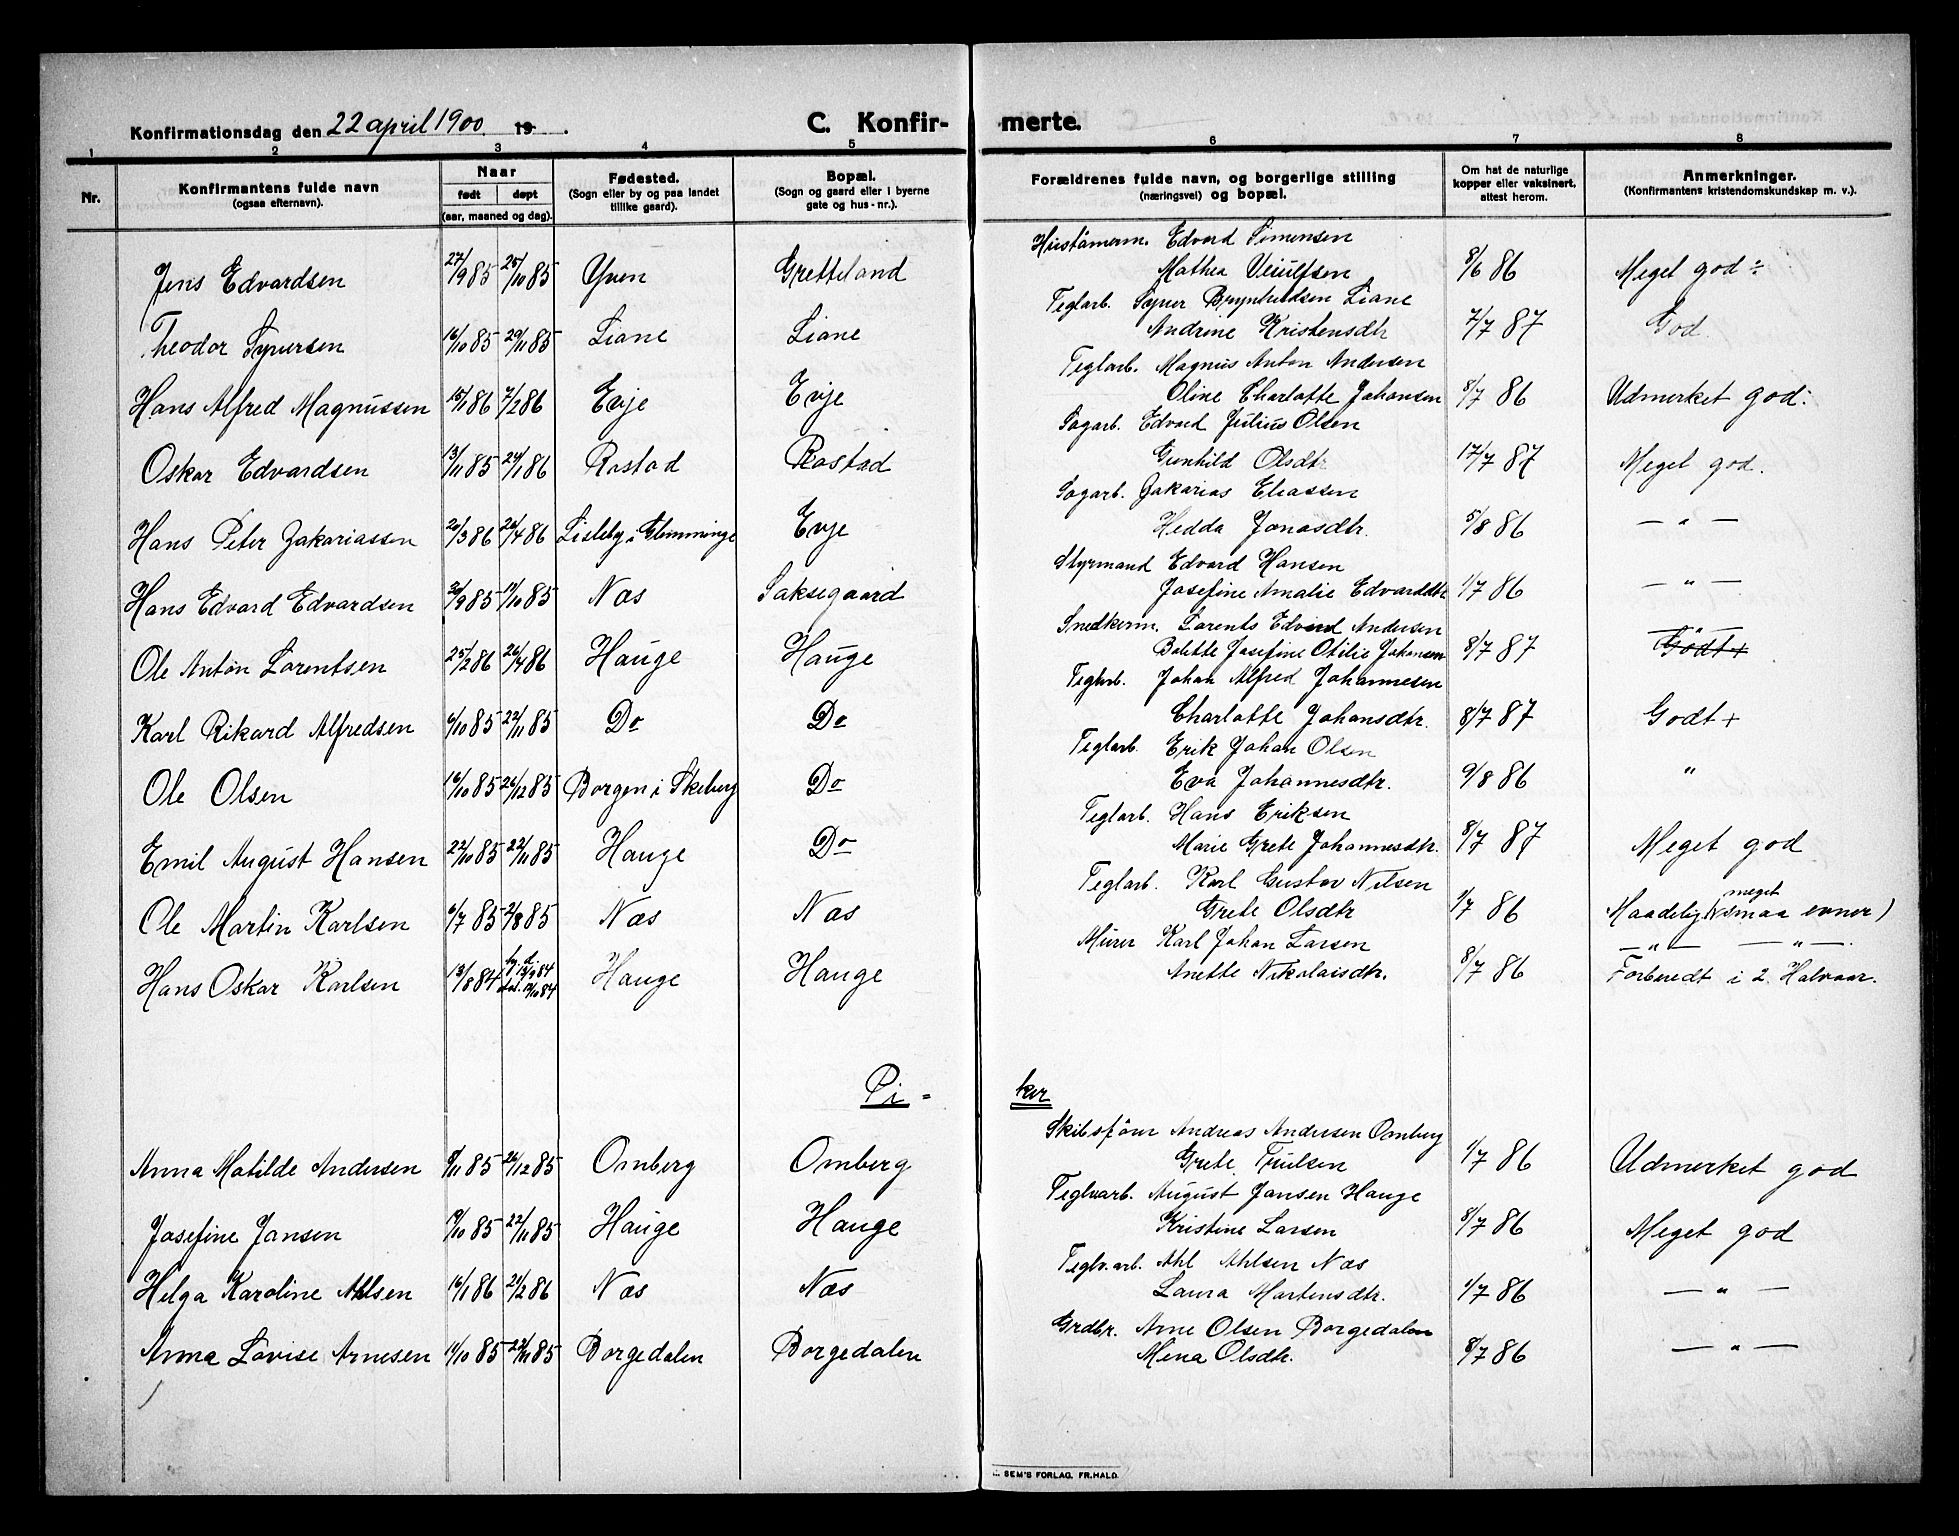 Konfirmationsdag den 22 april 1900 19
C. Konfir-
merte.
1 2 3 4 5 6 7 8
Nr.
Konfirmantens fulde navn
(ogsaa efternavn).
Naar
født døpt
(aar, maaned og dag).
Fødested.
(Sogn eller by og paa landet
tillike gaard).
Bopæl.
(Sogn og gaard eller i byerne
gate og hus-nr.).
Forældrenes fulde navn, og borgerlige stilling
(næringsvei) og bopæl.
Om hat de naturlige
kopper eller vaksinert,
attest herom.
Anmerkninger.
(Konfirmantens kristendomskundskap m. v.).
Hustømerm. Edvard Simensen
Jens Edvardsen 27/9 85 25/10 85 Yven Gretteland Mathea Veiulfsen 8/6 86 Meget god ÷
Teglarb. Syver Brynhildsen Liane
Theodor Syversen 16/10 85 29/11 85 Liane Liane Andrine Kristensdtr 7/7 87 God.
Teglarb. Magnus Anton Andersen
Hans Alfred Magnussen 15/1 86 7/2 86 Evje Evje Oline Charlotte Johansen 8/7 86 Udmerket god.
Sagarb. Edvard Julius Olsen
Oskar Edvardsen 13/11 85 24/1 86 Rostad Rostad Gunhild Olsdtr 17/7 87 Meget god.
Sagarb. Zakarias Eliassen
Hans Peter Zakariassen 20/3 86 26/4 86 Lisleby i Glemminge Evje Hedda Jonasdtr. 5/8 86 — " —
Styrmand Edvard Hansen
Hans Edvard Edvardsen /9 85 /10 85 Næs Saksegaard Josefine Amalie Edvardsdtr 1/7 86 — " —
Snedkerm. Lorents Edvard Andersen
Ole Anton Lorentsen 25/2 86 26/4 86 Hauge Hauge Bolette Josefine Otilie Johansen 8/7 87 — " — Godt+
Teglarb. Johan Alfred Johannesen
Karl Rikard Alfredsen 6/10 85 22/11 85 Do Do Charlotte Johansdtr. 8/7 87 Godt +
Teglarb. Erik Johan Olsen
Ole Olsen 16/10 85 26/12 85 Borgen i Skeberg Do Eva Johannesdtr. 9/8 86 "
Teglarb. Hans Eriksen
Emil August Hansen 22/10 85 22/11 85 Hauge Do Marie Grete Johannesdtr. 8/7 87 Meget god
Teglarb. Karl Gustav Nilsen meget
Ole Martin Karlsen 6/7 85 2/8 85 Næs Næs Grete Olsdtr 1/7 86 Maadelig (smaa evner)
Murer Karl Johan Larsen — " — — " —.
Hans Oskar Karlsen 13/8 84 hj. d. 84 10 84 Hauge Hauge Anette Nikolaisdtr. 8/7 86 Forberedt i 2. Halvaar.
Pi-
ker
Skibsfører Andreas Andersen Omberg
Anna Matilde Andersen /11 85 26/12 85 Omberg Omberg Grete Trulsen 1/7 86 Udmerket god
Teglvarb. August Jansen Hauge
Josefine Jansen /10 85 22/11 85 Hauge Hauge Kristine Larsen 8/7 86 Meget god
Teglv.arb. Ahl Ahlsen Næs
Helga Karoline Ahlsen 16/1 86 21/2 86 Næs Næs Laura Martensdtr. 1/7 86 — " —
Grdbr. Arne Olsen Borgedalen
Anna Lovise Arnesen 11/10 85 22/11 85 Borgedalen Borgedalen Mena Olsdtr. 8/7 86 — " —
SEM'S FORLAG, FR. HALD.